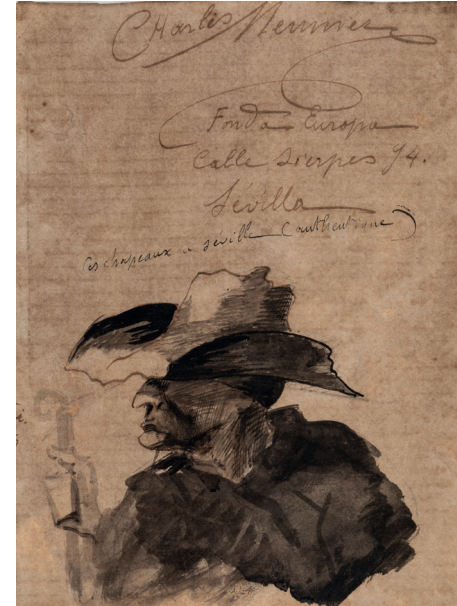 Charles Meunier
Fonda Europa
Calle Sierpes 94.
Sevilla
chapeaux a séville (authentique)